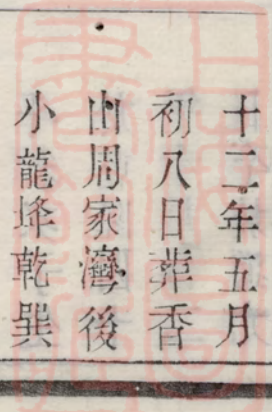 十二年五月
初八日葬香
山周家灣後
小龍埄乾巽